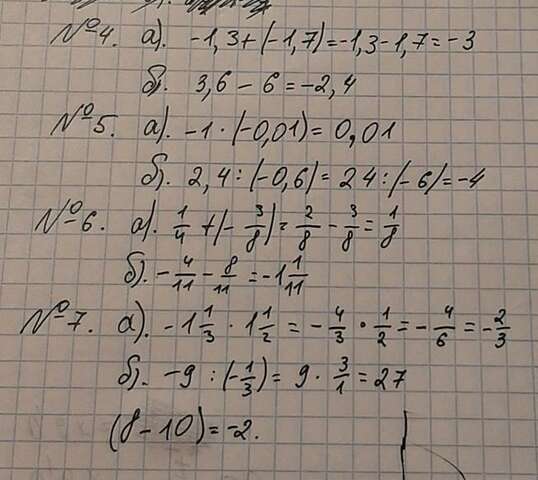 №4. а). -1,3+(-1,7)=-1,3-1,7=-3
б). 3,6-6=-2,4
№5. а). -1·(-0,01)=0,01
б). 2,4:(-0,6)=24:(-6)=-4
№6. а). 1/4+(-3/8)=2/8-3/8=1/8
б). -4/11-8/11=-1 1/11
№7. а). -1 1/3·1 1/2=-4/3·1/2=-4/6=-2/3
б). -9:(-1/3)=9·3/1=27
(8-10)=-2.